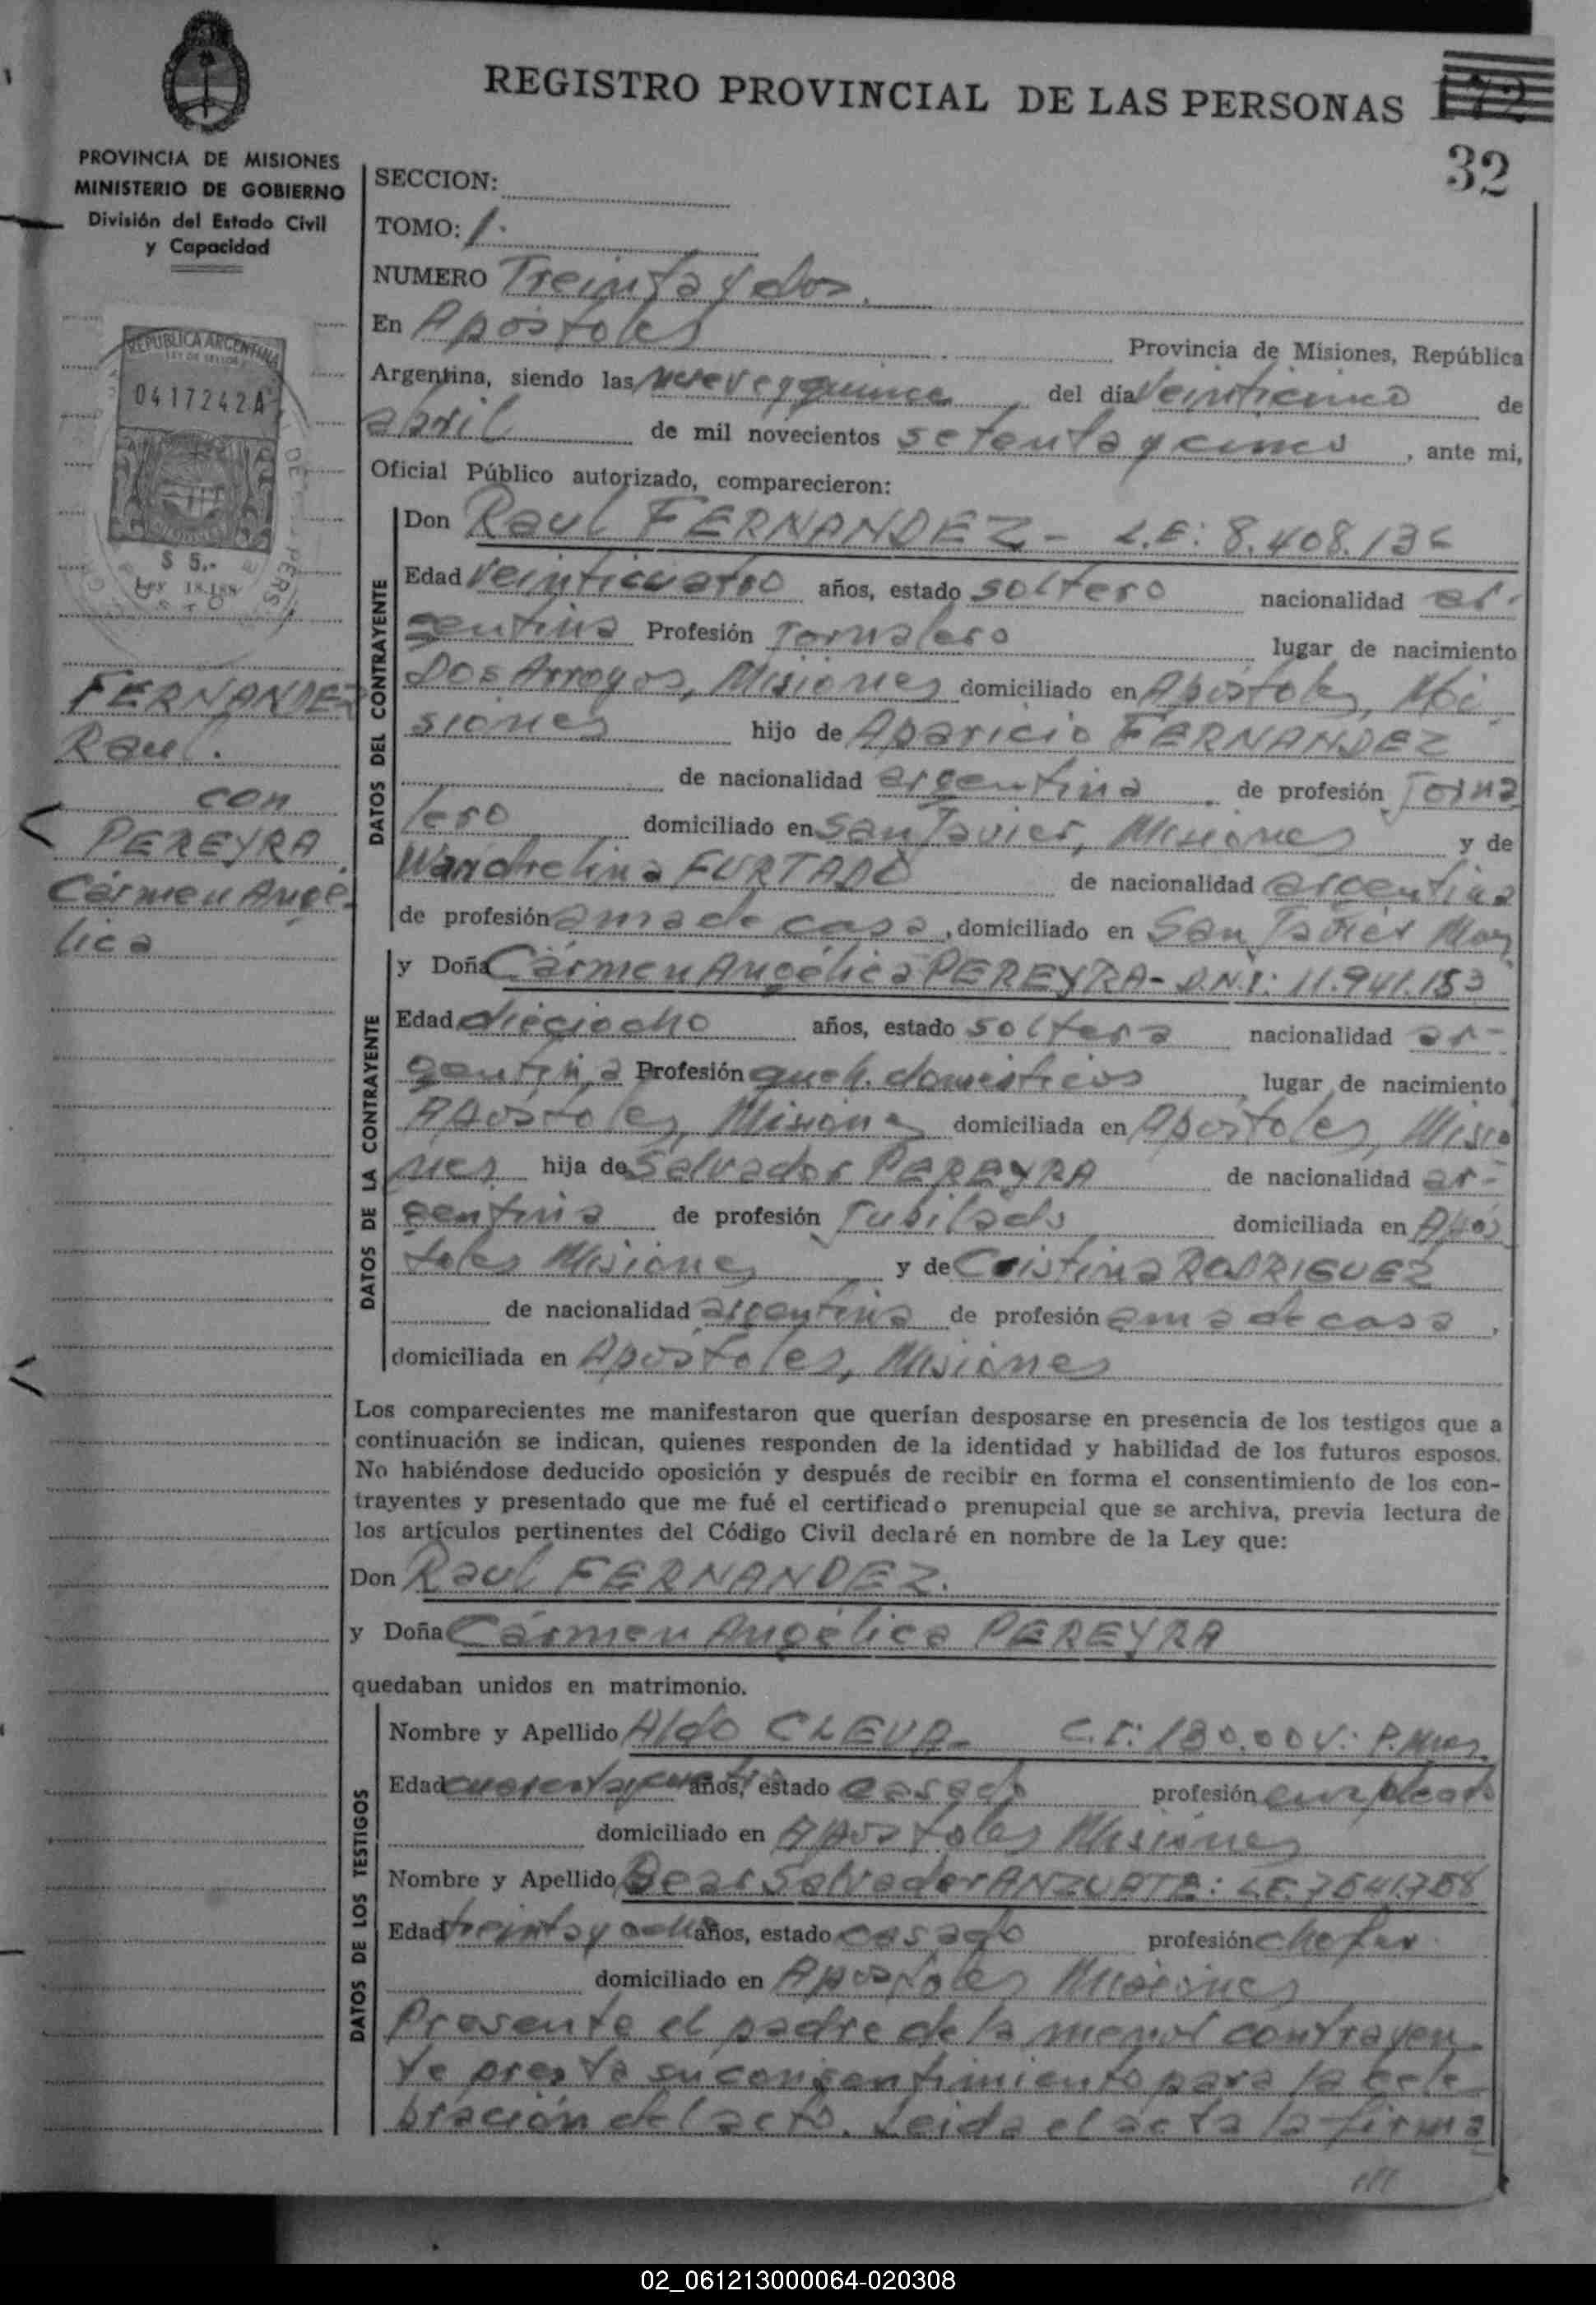 REGISTRO PROVINCIAL DE LAS PERSONAS 172
32
PROVINCIA DE MISIONES
MINISTERIO DE GOBIERNO
División del Estado Civil
y Capacidad
REPUBLICA ARGENTINA
LEY DE SELLOS
0417242A
$ 5.-
Ley 18.188
FERNANDEZ
Raul.
con
PEREYRA
Cármen Angé-
lica
SECCION:
TOMO: 1.
NUMERO Treinta y dos.
En Apóstoles Provincia de Misiones, República
Argentina, siendo las nueve y quince del día veinticinco de
abril de mil novecientos setenta y cinco, ante mi,
Oficial Público autorizado, comparecieron:
DATOS DEL CONTRAYENTE
Don Raul FERNANDEZ - L.E: 8.408.136
Edad veinticuatro años, estado soltero nacionalidad ar-
gentina Profesión Jornalero lugar de nacimiento
Dos Arroyos, Misiones domiciliado en Apóstoles, Mi-
siones hijo de Aparicio FERNANDEZ
de nacionalidad argentina de profesión Jorna
lero domiciliado en San Javier, Misiones y de
Wandrelina FURTADO de nacionalidad argentina
de profesión ama de casa, domiciliado en San Javier Mnes
DATOS DE LA CONTRAYENTE
y Doña Cármen Angélica PEREYRA - D.N.I: 11.941.153
Edad dieciocho años, estado soltera nacionalidad ar-
gentina Profesión queh. domésticos lugar de nacimiento
Apóstoles, Misiones domiciliada en Apóstoles, Misio
nes hija de Salvador PEREYRA de nacionalidad ar-
gentina de profesión Jubilado domiciliada en Após
toles Misiones y de Cristina RODRIGUEZ
de nacionalidad argentina de profesión ama de casa,
domiciliada en Apóstoles, Misiones
Los comparecientes me manifestaron que querían desposarse en presencia de los testigos que a
continuación se indican, quienes responden de la identidad y habilidad de los futuros esposos.
No habiéndose deducido oposición y después de recibir en forma el consentimiento de los con-
trayentes y presentado que me fué el certificado prenupcial que se archiva, previa lectura de
los artículos pertinentes del Código Civil declaré en nombre de la Ley que:
Don Raul FERNANDEZ.
y Doña Cármen Angélica PEREYRA
quedaban unidos en matrimonio.
DATOS DE LOS TESTIGOS
Nombre y Apellido Aldo CLEVA - C.I: 180.004: P. Mnes.
Edad cuarenta y cuatro años, estado casado profesión empleado
domiciliado en Apóstoles Misiones
Nombre y Apellido Salvador L.E. 7541.758
Edad treinta y ocho años, estado casado profesión chofer
domiciliado en Apóstoles Misiones
Presente el padre de la menor contrayen
te presta su consentimiento para la cele
bración del acto. Leida el acta la firma
///
02_061213000064-020308